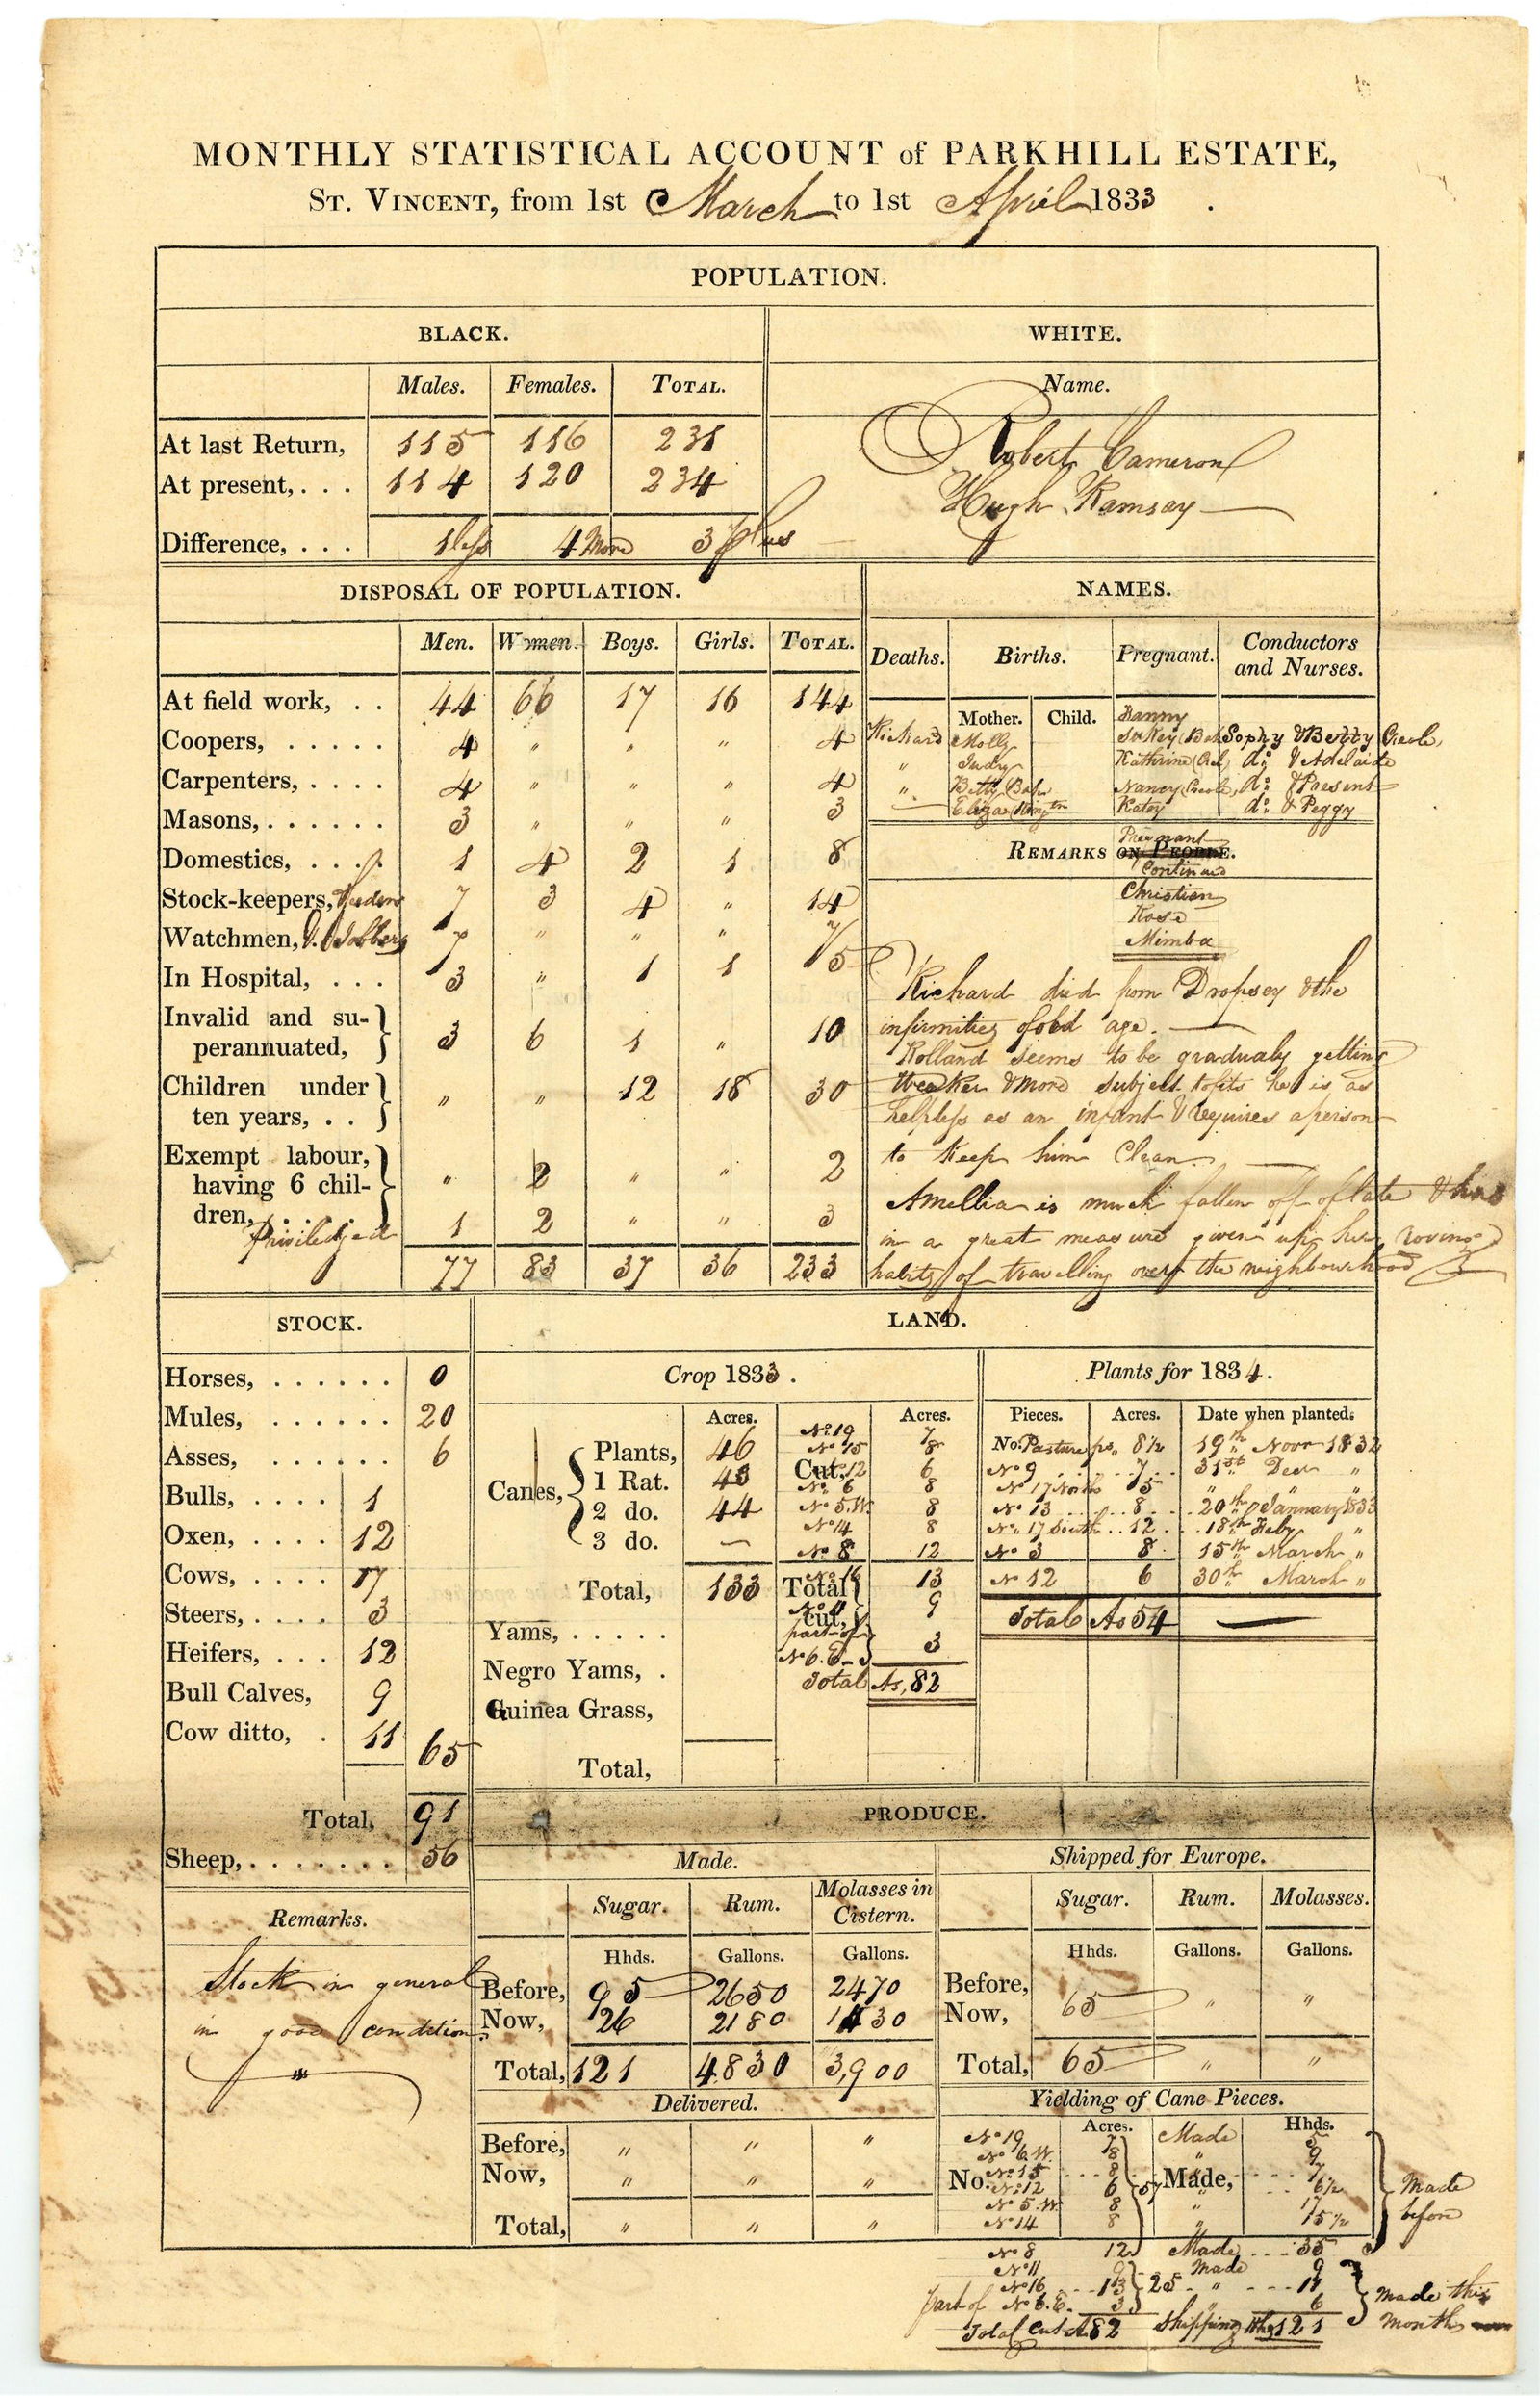 MONTHLY STATISTICAL ACCOUNT of PARKHILL ESTATE,
ST. VINCENT, from 1st March to 1st April 1833 .
POPULATION.
BLACK. WHITE.
Males. Females. TOTAL. Name.
At last Return, 115 116 231 Robert Cameron
At present, . . . 114 120 234 Hugh Ramsay
Difference, . . . 1 less 4 More 3 plus
DISPOSAL OF POPULATION. NAMES.
Men. Women. Boys. Girls. TOTAL. Deaths. Births. Pregnant. Conductors and Nurses.
At field work, . . 44 66 17 16 144
Mother. Child. Fanny
Coopers, . . . . . 4 " " " 4 Richard Molly Sukey Sophy & Betty Creole,
" Judy Kathrine do. & Adelaide
Carpenters, . . . . 4 " " " 4 " Betty Nancy Creole, do. & Present
Masons, . . . . . . 3 " " " 3 Eliza Katey do. & Peggy
Domestics, . . . 1 4 2 1 8 REMARKS ON PEOPLE.
Pregnant
Continued
Stock-keepers, 7 3 4 " 14 Christian
Rose
Watchmen, & Jobbers 7 " " " 7 Mimba
In Hospital, . . . 3 " 1 1 5
Richard died from Dropsey & the
Invalid and su-
perannuated, 3 6 1 " 10 infirmities of old age.
Rolland seems to be gradualy getting
Children under
ten years, . . " " 12 18 30 Weaker & more subject to fits he is as
helpless as an infant & requires a person
Exempt labour,
having 6 chil-
dren, . . . . . " 2 " " 2 to Keep him Clean.
Amellia is much fallen off of late & has
Priviledjed 1 2 " " 3 in a great measure given up her roving
77 83 37 36 233 habits of travelling over the neighbourhood
STOCK. LAND.
Crop 1833. Plants for 1834.
Horses, . . . . . . 0
Mules, . . . . . . 20
Asses, . . . . . . 6
Bulls, . . . . 1
Oxen, . . . . 12
Cows, . . . . 17
Steers, . . . . 3
Heifers, . . . 12
Bull Calves, 9
Cow ditto, . 11 65
Total, 91
Sheep, . . . . . . . 56
Remarks.
Stock in general
in good condition
Acres. Acres.
Canes, Plants, 46
1 Rat. 43
2 do. 44
3 do. —
Total, 133
Yams, . . . . .
Negro Yams, .
Guinea Grass,
Total,
Cut,
No. 19 7
No. 15 8
No. 12 6
No. 6 8
No. 5.W. 8
No 14 8
No. 8 12
Total cut,
No. 16 13
No. 11 9
part of
No 6. E. 3
Total As, 82
Pieces. Acres. Date when planted.
No. Pasture ps. 8 1/2 19th Novr 1832
No 9 7 31st Decr "
No 17 North 5 " " "
No 13 8 20th January 1833
No. 17 South 12 18th Feby "
No 3 8 15th March "
No 12 6 30th March "
Total As 54
PRODUCE.
Made. Shipped for Europe.
Sugar. Rum. Molasses in Cistern. Sugar. Rum. Molasses.
Hhds. Gallons. Gallons. Hhds. Gallons. Gallons.
Before, 95 2650 2470 Before,
Now, 26 2180 1430 Now, 65 " "
Total, 121 4830 3,900 Total, 65 " "
Delivered. Yielding of Cane Pieces.
Before, " " "
Now, " " "
Total, " " "
Acres. Hhds.
No. Made,
No 19 7 Made 5
No 6.W. 8 " 9
No 15 8 " 7
No. 12 6 57 " 6 1/2
No 5.W. 8 " 17
No 14 8 " 15 1/2
Made before
No 8 12 Made 35
No 11 9 Made 9
No 16 13 25 " 11
part of No 6. E. 3 " 6
Made this month
Total Cut A 82 Shipping Hhds 121